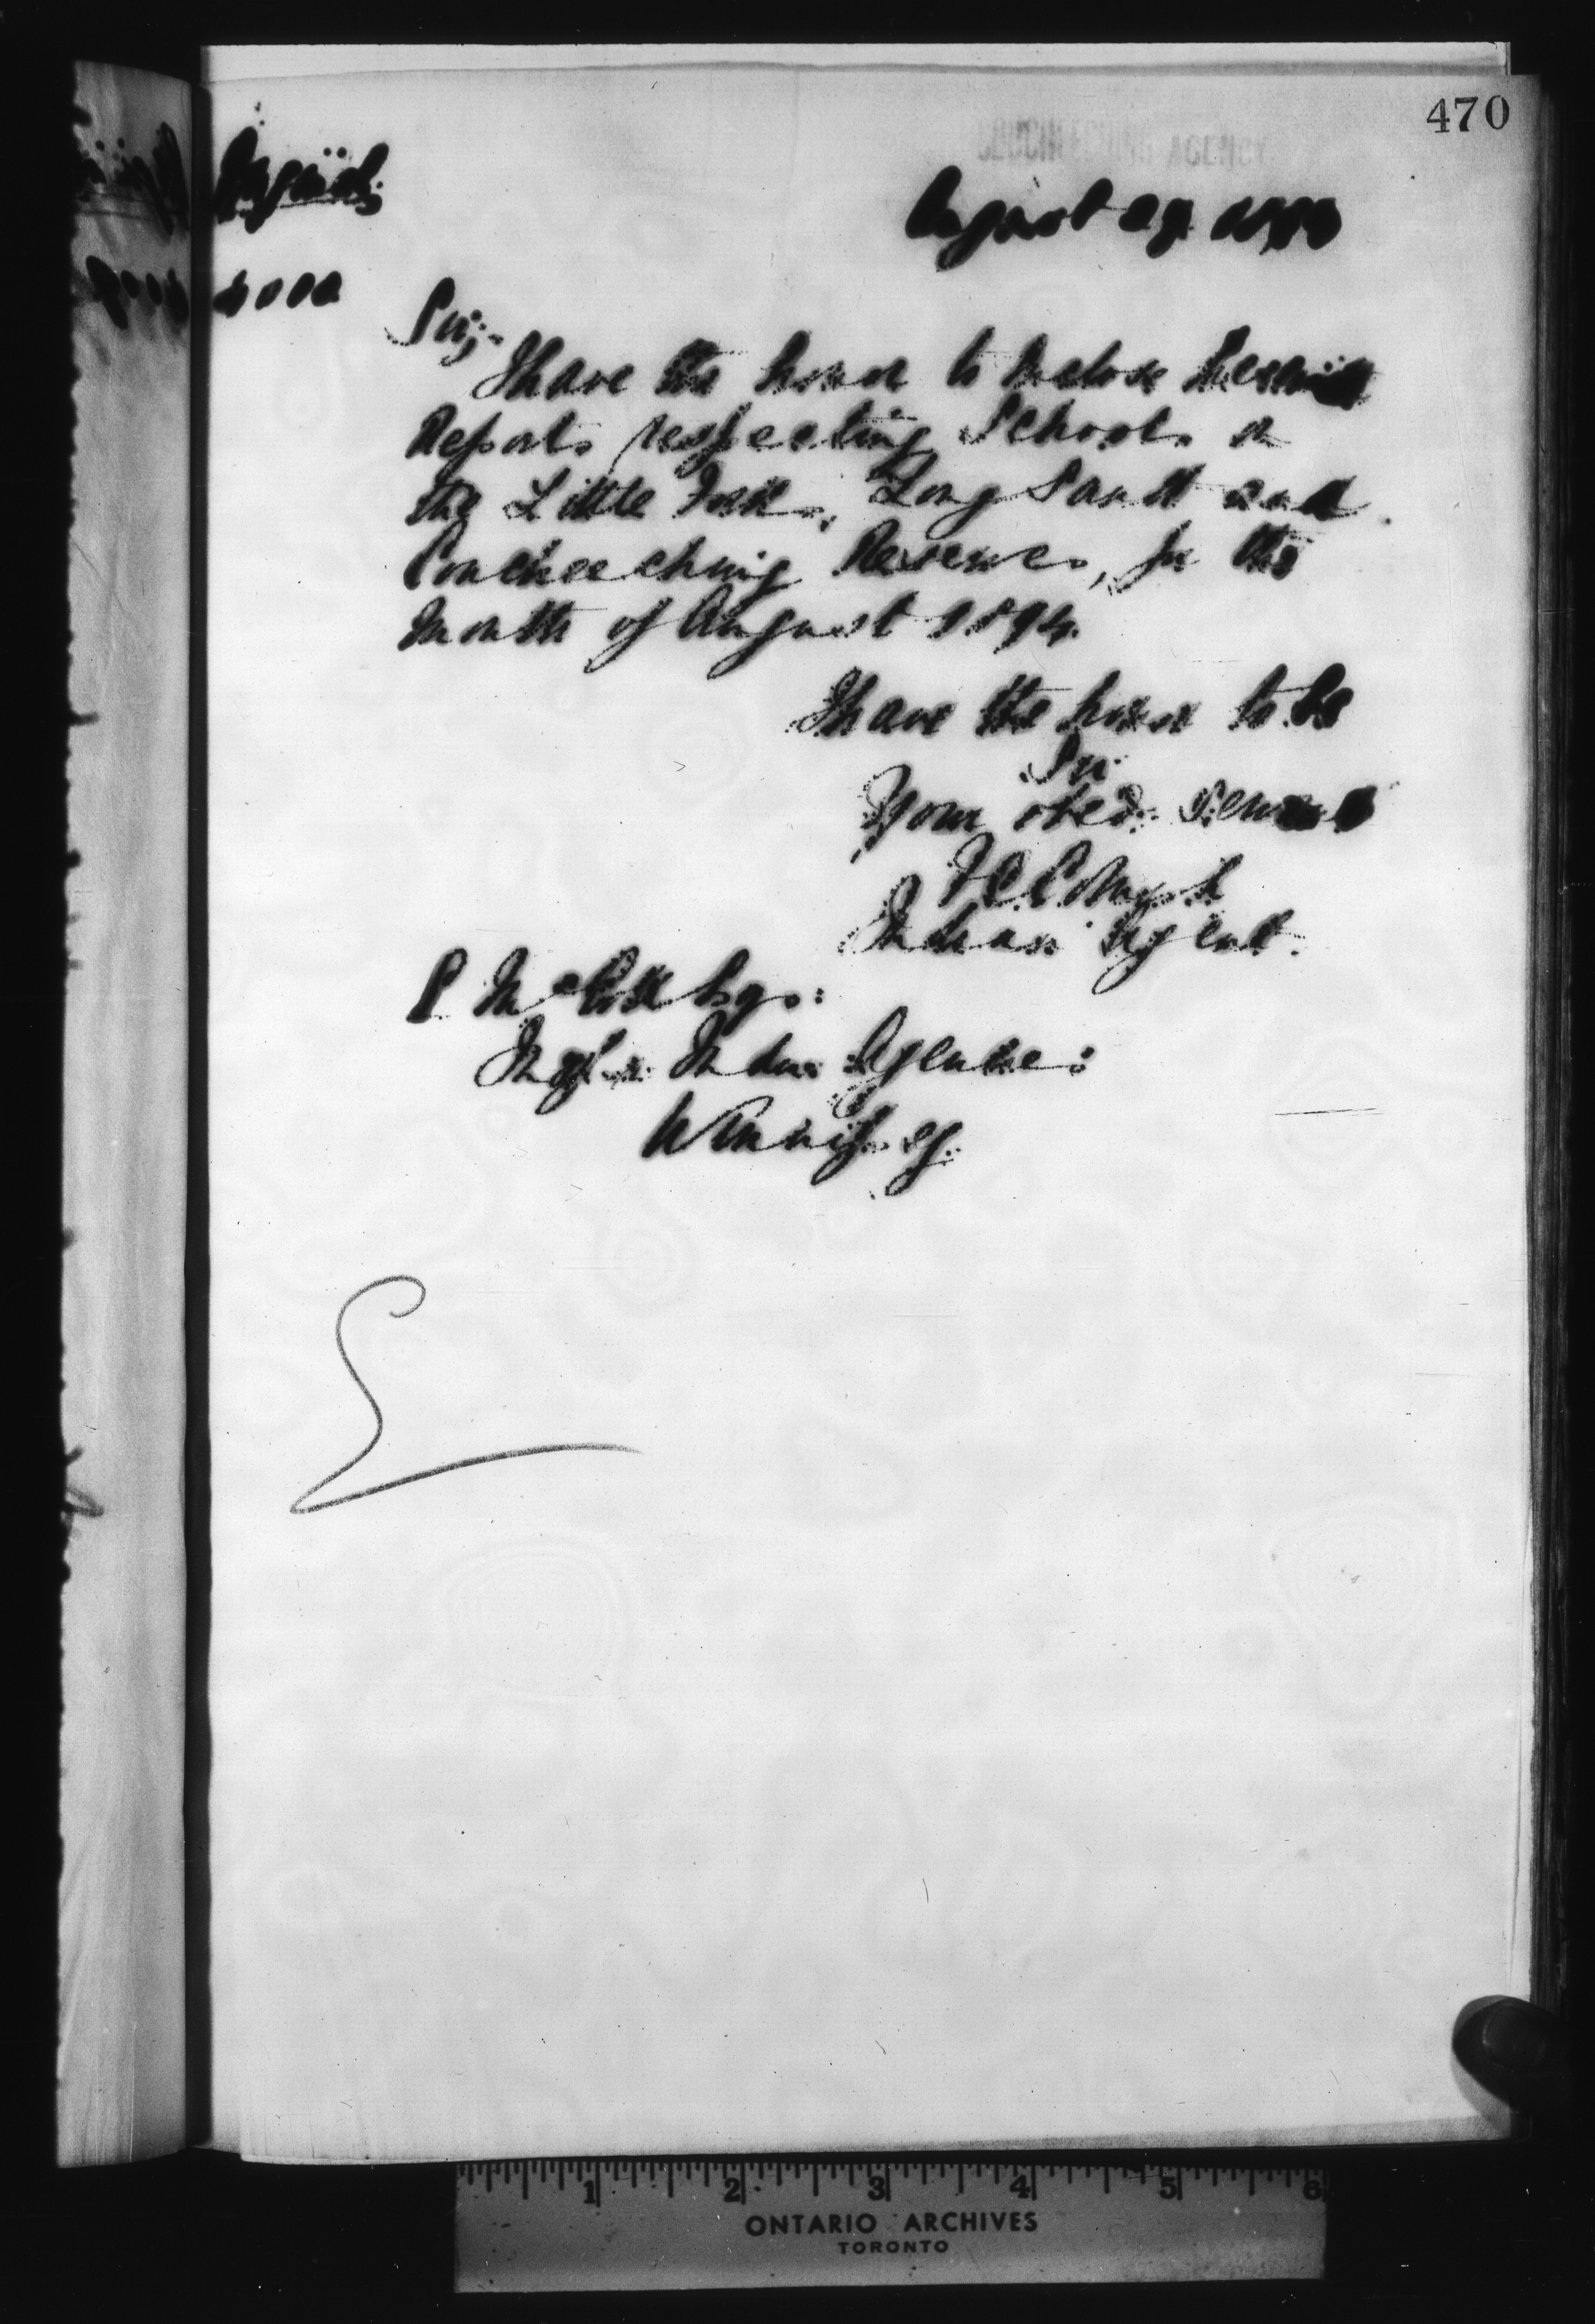 470
COUCHEECHING AGENCY
August 1894
Sir;-
I have the honor to inclose herewith
Reports respecting Schools on
the Little Forks, Long Sault and
Coucheeching Reserves, for the
Month of August 1894.
I have the honor to be
Sir
Your obed: Servant
Indian Agent.
E McColl Esq:
Insp Indian Agencies
Winnipeg.
1 2 3 4 5 6
ONTARIO ARCHIVES
TORONTO